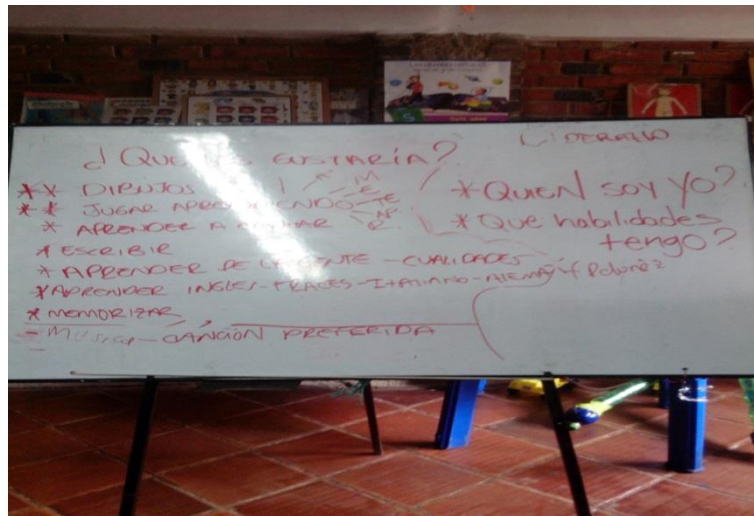 ¿QUE LES GUSTARÍA?
** DIBUJOS
** JUGAR APRENDIENDO
* APRENDER A
* ESCRIBIR
* APRENDER DE LA GENTE - CUALIDADES
* APRENDER INGLES - FRACES - ITALIANO - ALEMAN Y Polonéz
* MEMORIZAR
- MUSICA - CANCIÓN PREFERIDA
LIDERAZGO
* QUIEN SOY YO?
* Que habilidades
tengo?